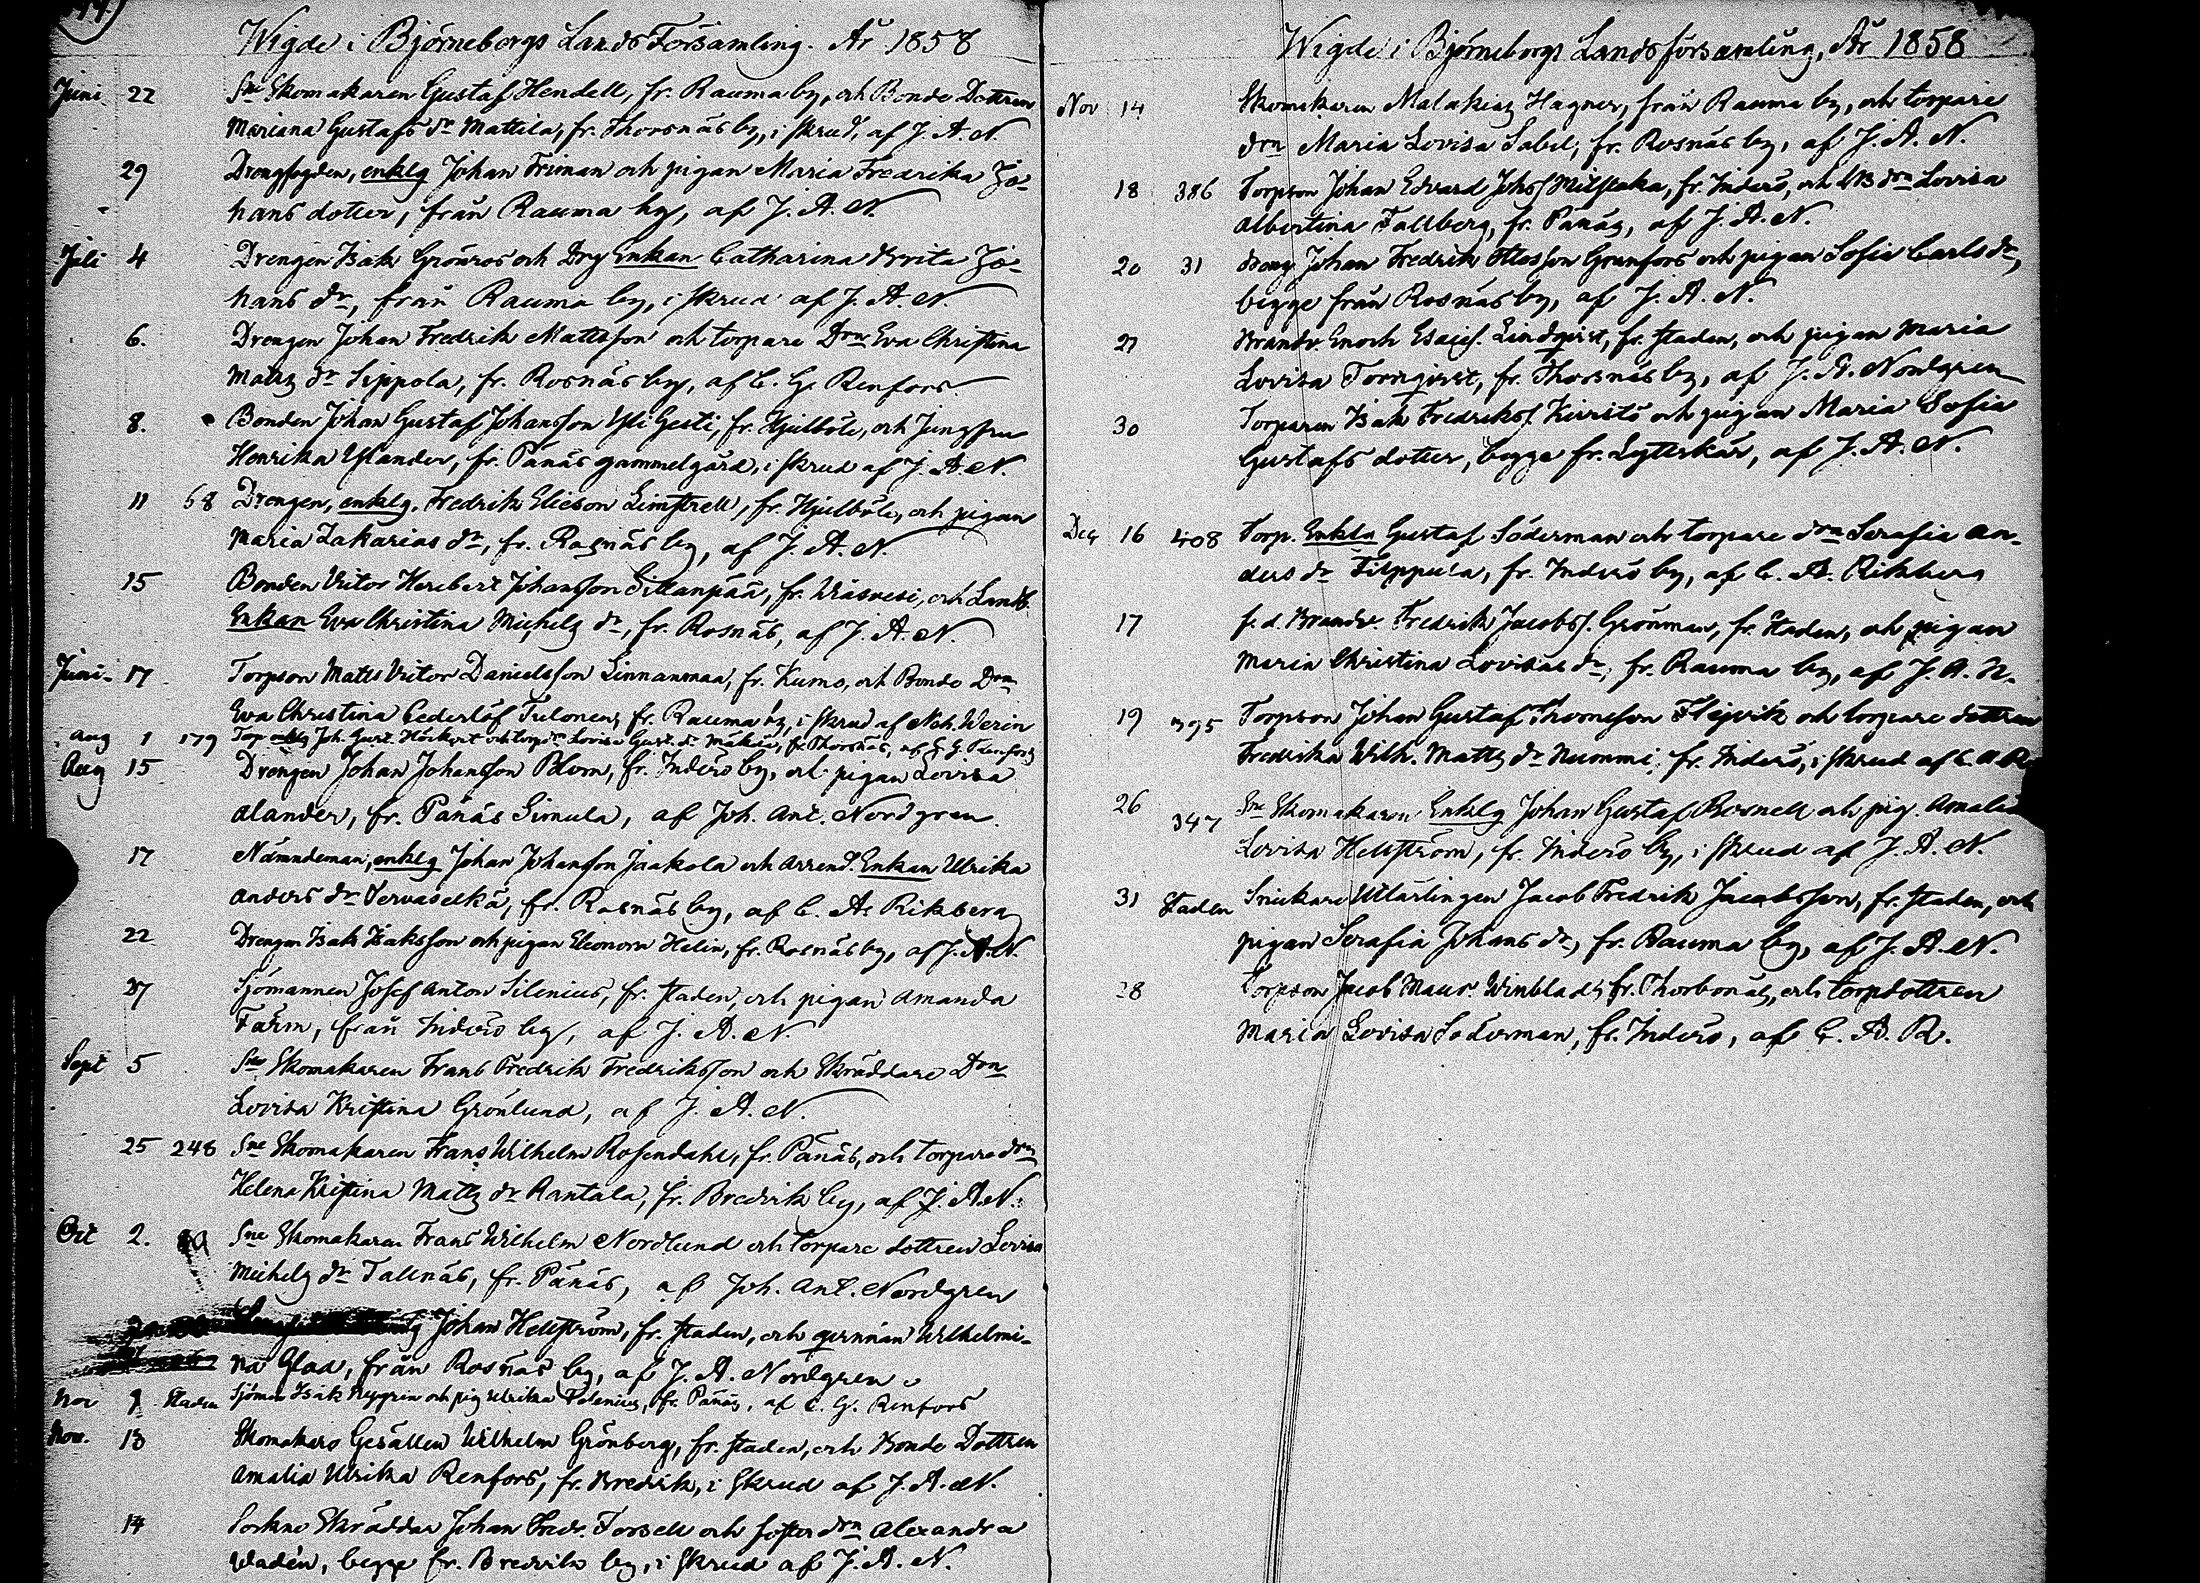 Wigde i Björneborgs Lands Församling. År 1858
Juni 22 Sne Skomakaren Gustaf Hendell, fr. Rauma by, och Bonde Dottren
Mariana Gustafs dr Mattila, fr. Thorsnäs by, i skrud, af J. A. N.
29 Drengfogden, enklg Johan Friman och pigan Maria Fredrika Jo-
hans dotter, från Rauma by, af J. A. N.
Juli 4 Drengen Isak Grönros och Drg Enkan Catharina Brita Jo-
hans dr, från Rauma by, i skrud af J. A. N
6. Drengen Johan Fredrik Mattsson och torpare Drn Eva Christina
Matts dr Sippola, fr. Rosnäs by, af C. G. Renfors
8. Bonden Johan Gustaf Johansson Yli Gesti, fr. Hjulböle, och Jungfru
Henrika Ylander, fr. Pänäs gammelgård, i skrud af J. A. N.
11 58 Drengen, enklg. Fredrik Elieson Limstrell, fr. Hjulböle, och pigan
Maria Zakarias dr, fr. Rosnäs by, af J. A. N.
15 Bonden Victor Heribert Johansson Sillanpää, fr. och Landb.
Enkan Eva Christina Michels dr, fr. Rosnäs, af J. A. N.
Juni 17 Torpson Matts Victor Danielsson Linnanmaa, fr. Kumo, och Bonde Drn
Eva Christina Cederlöf Tulonen, fr. Rauma by, i skrud af Werin
Aug 1 179 Torp enklg Joh. Gust. Höckert och torp drn Lovisa Gust. dr fr. Thorsnäs, af C. G. Renfors
Aug 15 Drengen Johan Johansson Blom, fr. Inderö by, och pigan Lovisa
Alander, fr. Pänäs Simula, af Joh. Ant. Nordgren
17 Nämndeman, enklg Johan Johansson Jaakola och Arrend. Enkan Ulrika
Anders dr Tervaselkä, fr. Rosnäs by, af C. A. Rikberg
22 Drengen Isak Isaksson och pigan Eleonora Helin, fr. Rosnäs by, af J. A. N.
27 Sjömannen Josef Anton Silenius, fr. staden, och pigan Amanda
Färm, från Inderö by, af J. A. N.
Sept 5 Sne Skomakaren Frans Fredrik Fredriksson och Skräddare Drn
Lovisa Kristina Grönlund, af J. A. N.
25 248 Sne Skomakaren Frans Wilhelm Rosendahl, fr. Pänäs, och torpare drn
Helena Kristina Matts dr Rantala, fr. Bredvik by, af J. A. N.
Oct 2. Sne Skomakaren Frans Wilhelm Nordlund och torpare dottren Lovisa
Michels dr Tallnäs, fr. Pänäs, af Joh. Ant. Nordgren
Johan Hellström, fr. staden, och qvinnan Wilhelmi-
na Glad, från Rosnäs by, af J. A. Nordgren
Nov 7 Staden Sjöman Isak Nygren och pig Ulrika Polenius, fr. Pänäs, af C. G. Renfors
Nov. 13 Skomakare Gesällen Wilhelm Grönberg, fr. staden, och Bonde Dottren
Amalia Ulrika Renfors, fr. Bredvik, i skrud af J. A. N.
14 Sockne Skräddar Johan Fredr. Forsell och foster drn Alexandra
Wadén, begge fr. Bredviks by, i skrud af J. A. N.
Wigde i Björneborgs Landsförsamling, År 1858
Nov 14 Skomakaren Malakias Hagner, från Rauma by, och torpare
drn Maria Lovisa Sabel, fr. Rosnäs by, af J. A. N.
18 386 Torpson Johan Edvard Johss Millstaka, fr. Inderö, och drn Lovisa
Albertina Fallberg, fr. Pänäs, af J. A. N.
20 31 Dreng Johan Fredrik Ottosson Granfors och pigan Sofia Carls dr,
begge från Rosnäs by, af J. A. N.
27 Brandv. Enoch Esaies. Lindqvist, fr. staden, och pigan Maria
Lovisa Tornqvist, fr. Thorsnäs by, af J. A. Nordgren
30 Torparen Isak Fredrikss. Kivistö och pigan Maria Sofia
Gustafs dotter, begge fr. Lyttskär, af J. A. N.
Dec 16 408 Torp. Enkln Gustaf Söderman och torpare drn Serafia An-
ders dr Filppula, fr. Inderö by, af C. A. Rikberg
17 f. d. Brandv. Fredrik Jacobss. Grönman, fr. staden, och pigan
Maria Christina Lovisas dr, fr. Rauma by, af J. A. N.
19 395 Torpson Johan Gustaf Thomasson Flejvik och torpare dottren
Fredrika Wilh. Matts dr Nummi, fr. Inderö, i skrud af C. A. R
26 347 Sne Skomakaren Enklg Johan Gustaf Rosnell och pig. Amalia
Lovisa Hellström, fr. Inderö by, i skrud af J. A. N.
31 Staden Snickare Utlärlingen Jacob Fredrik Jacobsson, fr. staden, och
pigan Serafia Johans dr, fr. Rauma by, af J. A. N.
28 Torpson Jacob Maur. Winblad, fr. Thorbonäs, och torpdottren
Maria Lovisa Söderman, fr. Inderö, af C. A. R.